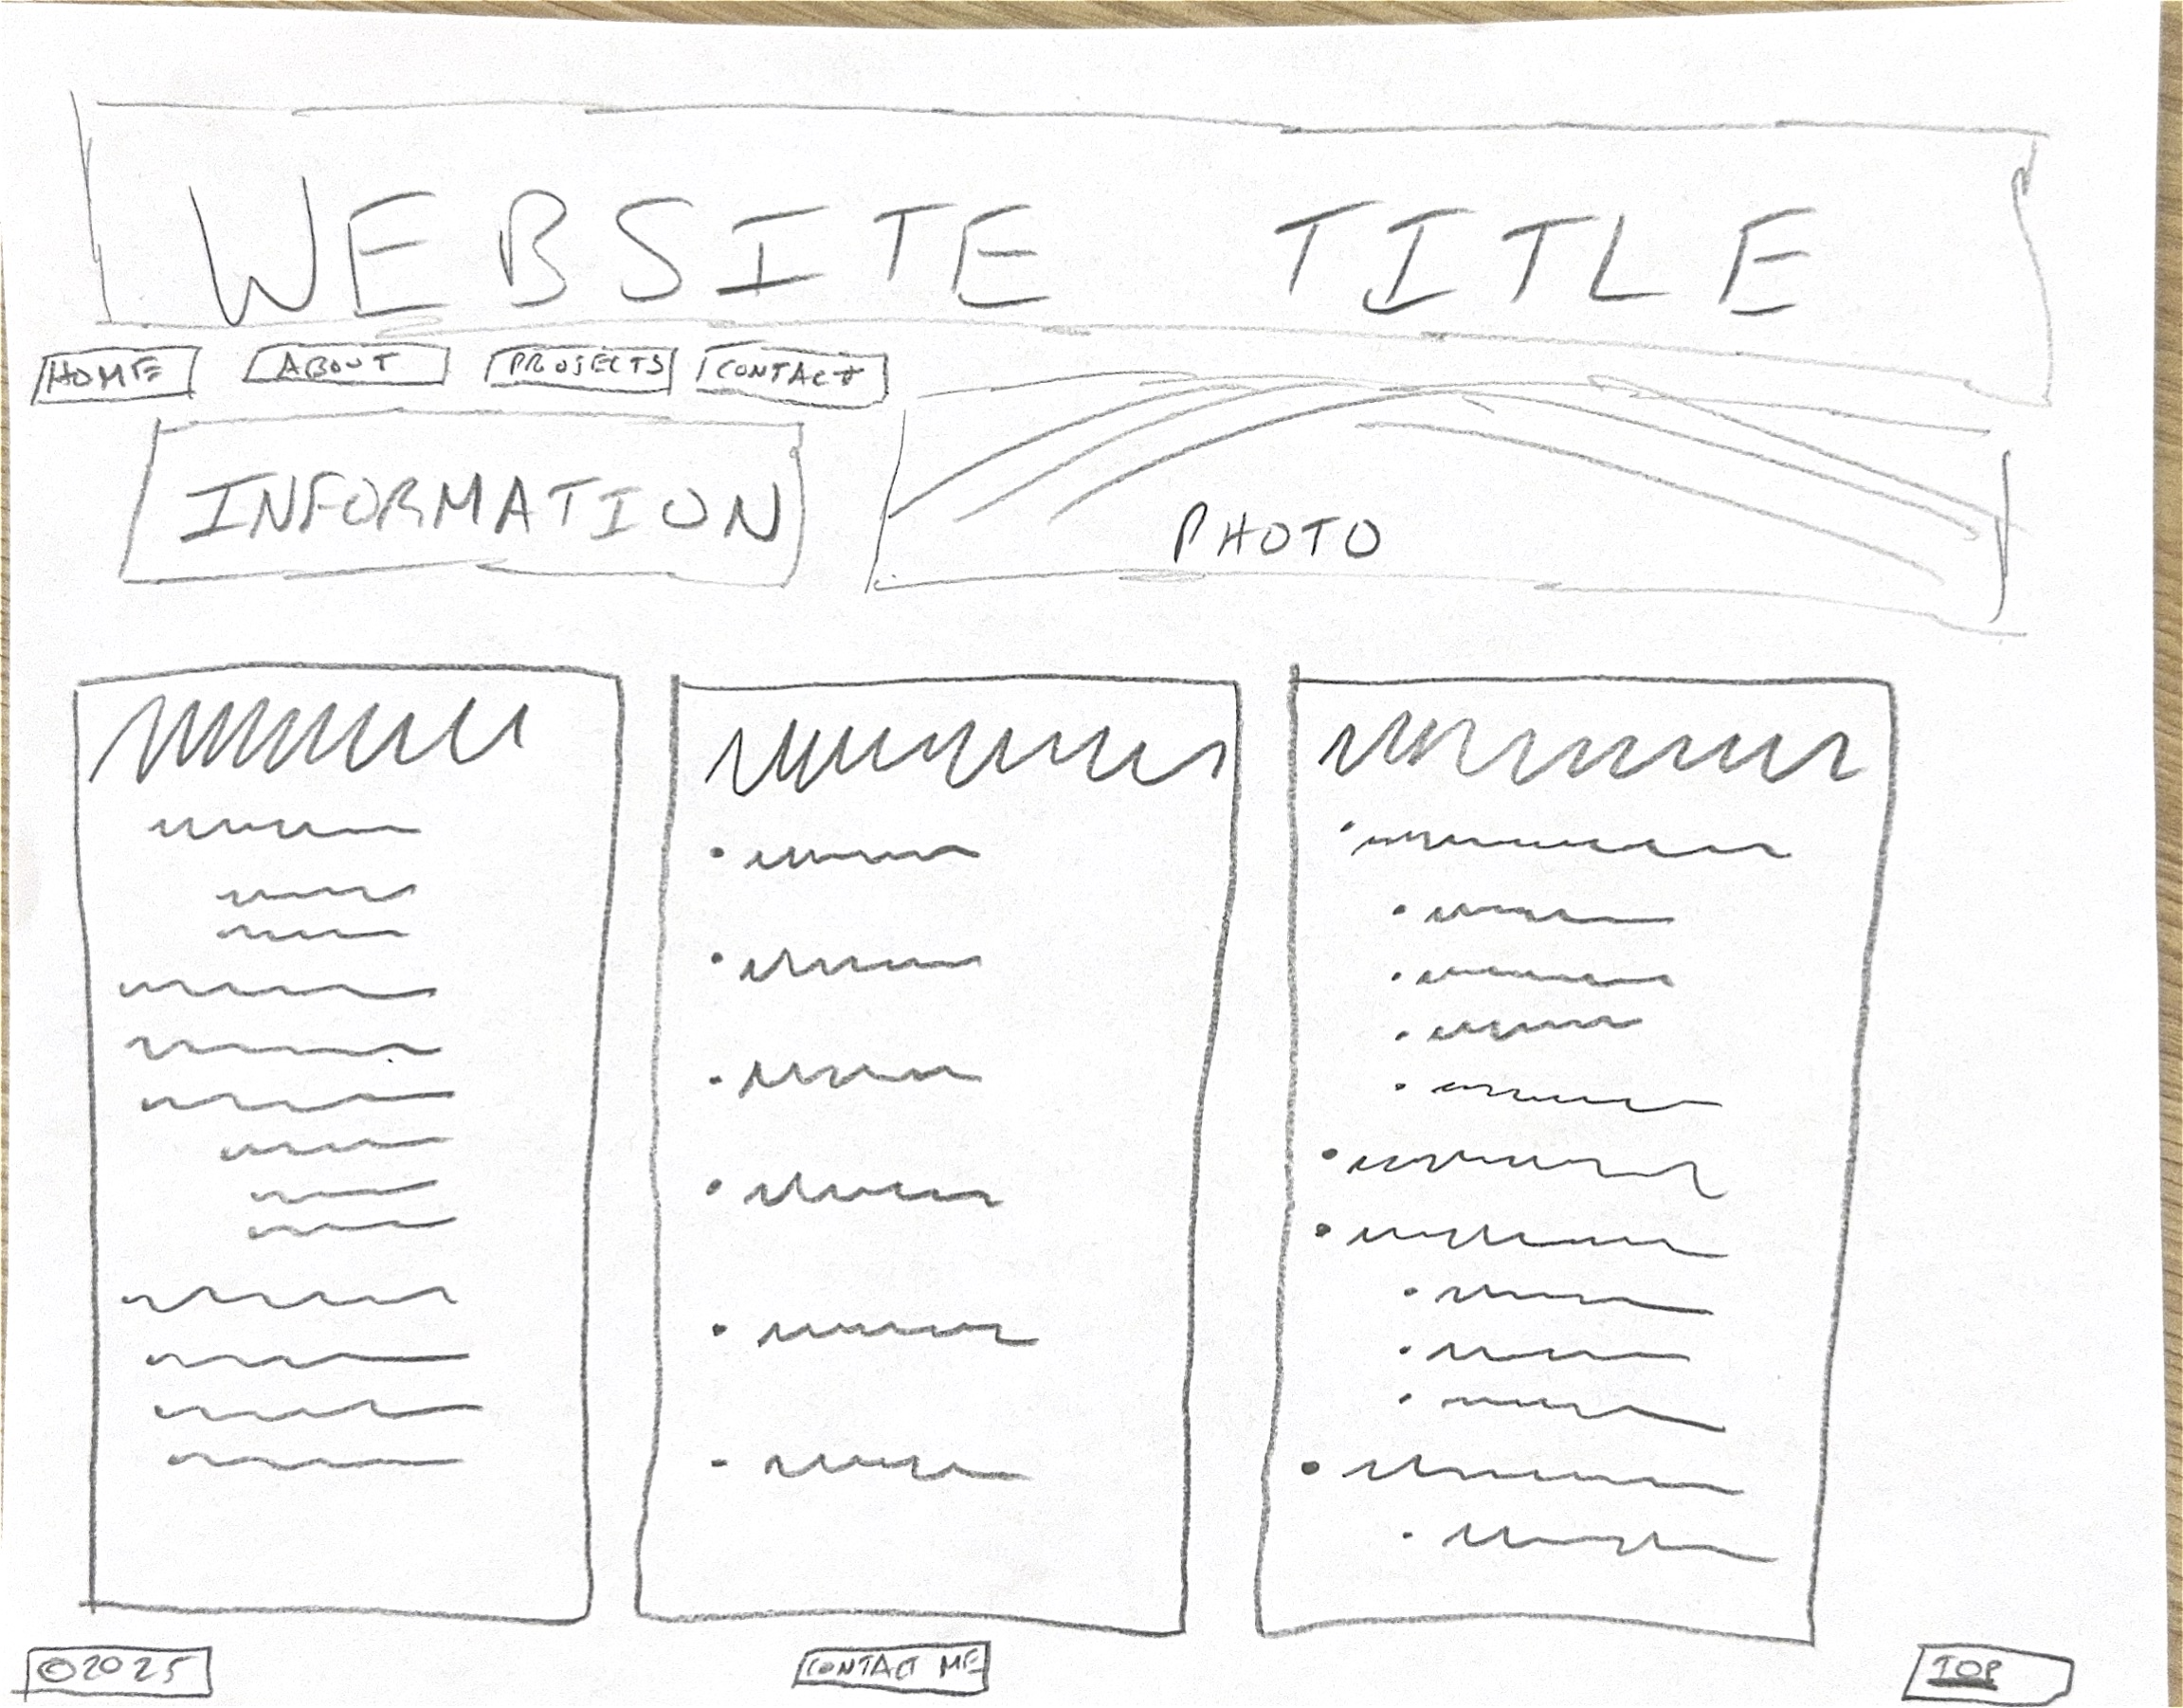 WEBSITE TITLE
HOME ABOUT PROJECTS CONTACT
INFORMATION
PHOTO
©2025 CONTACT ME TOP